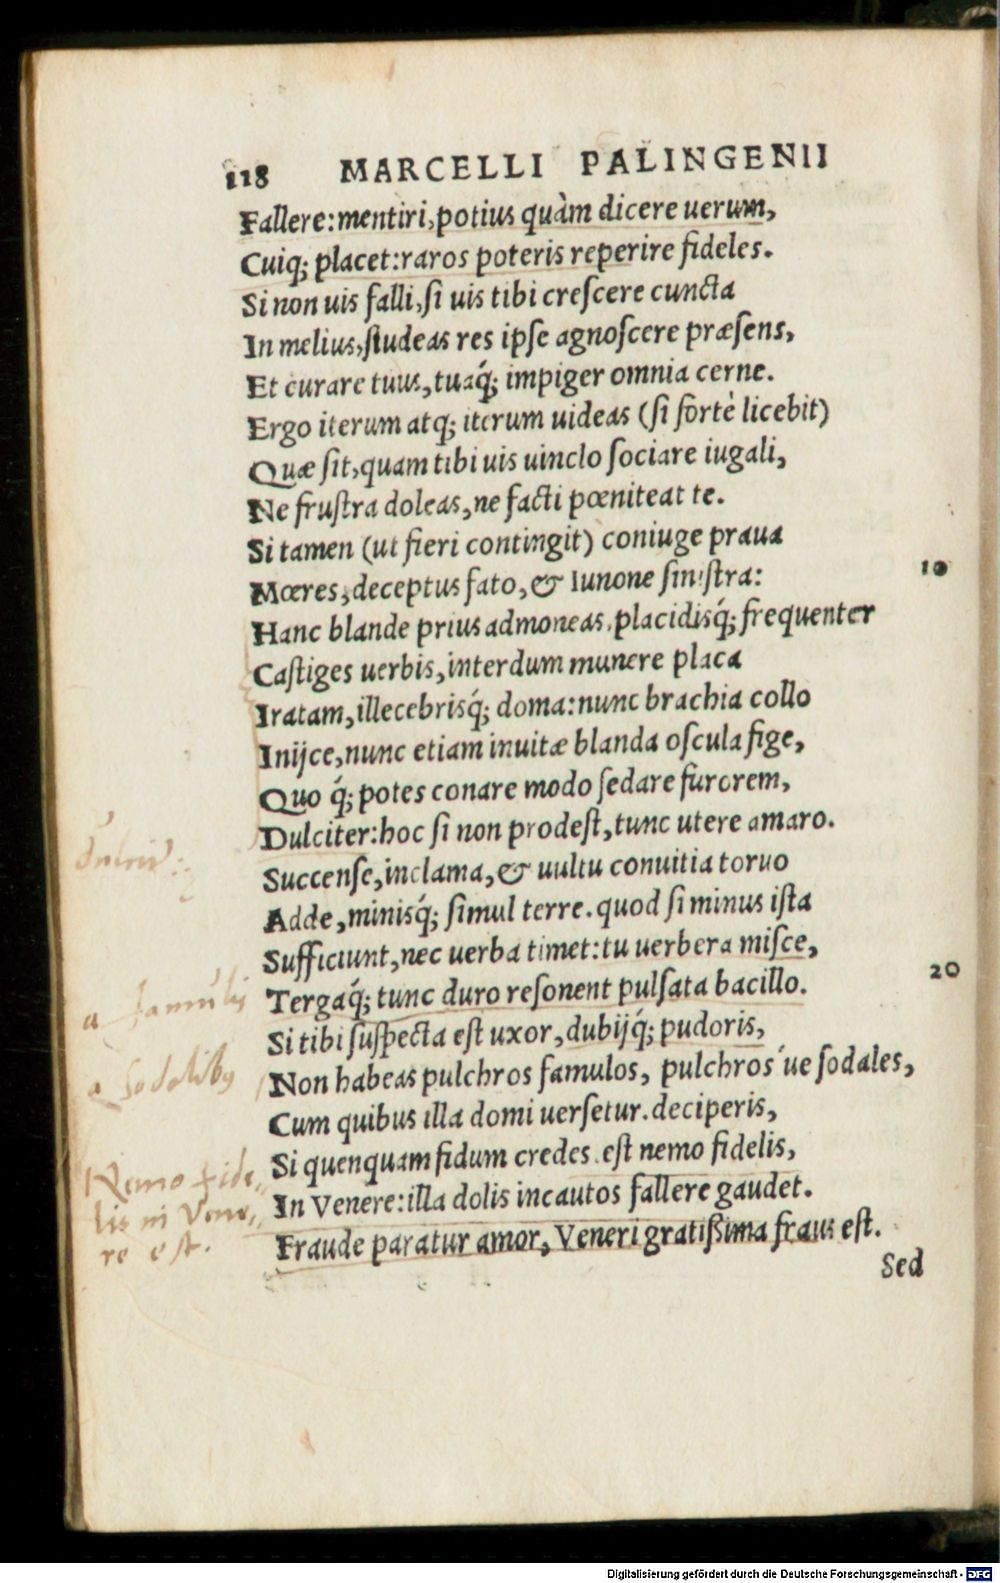 118 MARCELLI PALINGENII
Fallere: mentiri, potius quàm dicere uerum,
Cuiq; placet: raros poteris reperire fideles.
Si non uis falli, si uis tibi crescere cuncta
In melius, studeas res ipse agnoscere præsens,
Et curare tuus, tuaq́; impiger omnia cerne.
Ergo iterum atq; iterum uideas (si fortè licebit)
Quæ sit, quam tibi uis uinclo sociare iugali,
Ne frustra doleas, ne facti pœniteat te.
Si tamen (ut fieri contingit) coniuge praua
Mœres, deceptus fato, & Iunone sinistra: 10
Hanc blande prius admoneas, placidisq́; frequenter
Castiges uerbis, interdum munere placa
Iratam, illecebrisq́; doma: nunc brachia collo
Inijce, nunc etiam inuitæ blanda oscula fige,
Quo q́; potes conare modo sedare furorem,
Dulciter: hoc si non prodest, tunc utere amaro.
Succense, inclama, & uultu conuitia toruo
Adde, minisq́; simul terre. quod si minus ista
Sufficiunt, nec uerba timet: tu uerbera misce,
Tergaq́; tunc duro resonent pulsata bacillo. 20
a famulis
Si tibi suspecta est uxor, dubijq́; pudoris,
Non habeas pulchros famulos, pulchros ue sodales,
a sodalibus
Cum quibus illa domi uersetur. deciperis,
Si quenquam fidum credes. est nemo fidelis,
In Venere: illa dolis incautos fallere gaudet.
Fraude paratur amor, Veneri gratissima fraus est.
Nemo fide,,
lis in Vene,,
re est.
Sed
Digitalisierung gefördert durch die Deutsche Forschungsgemeinschaft - DFG